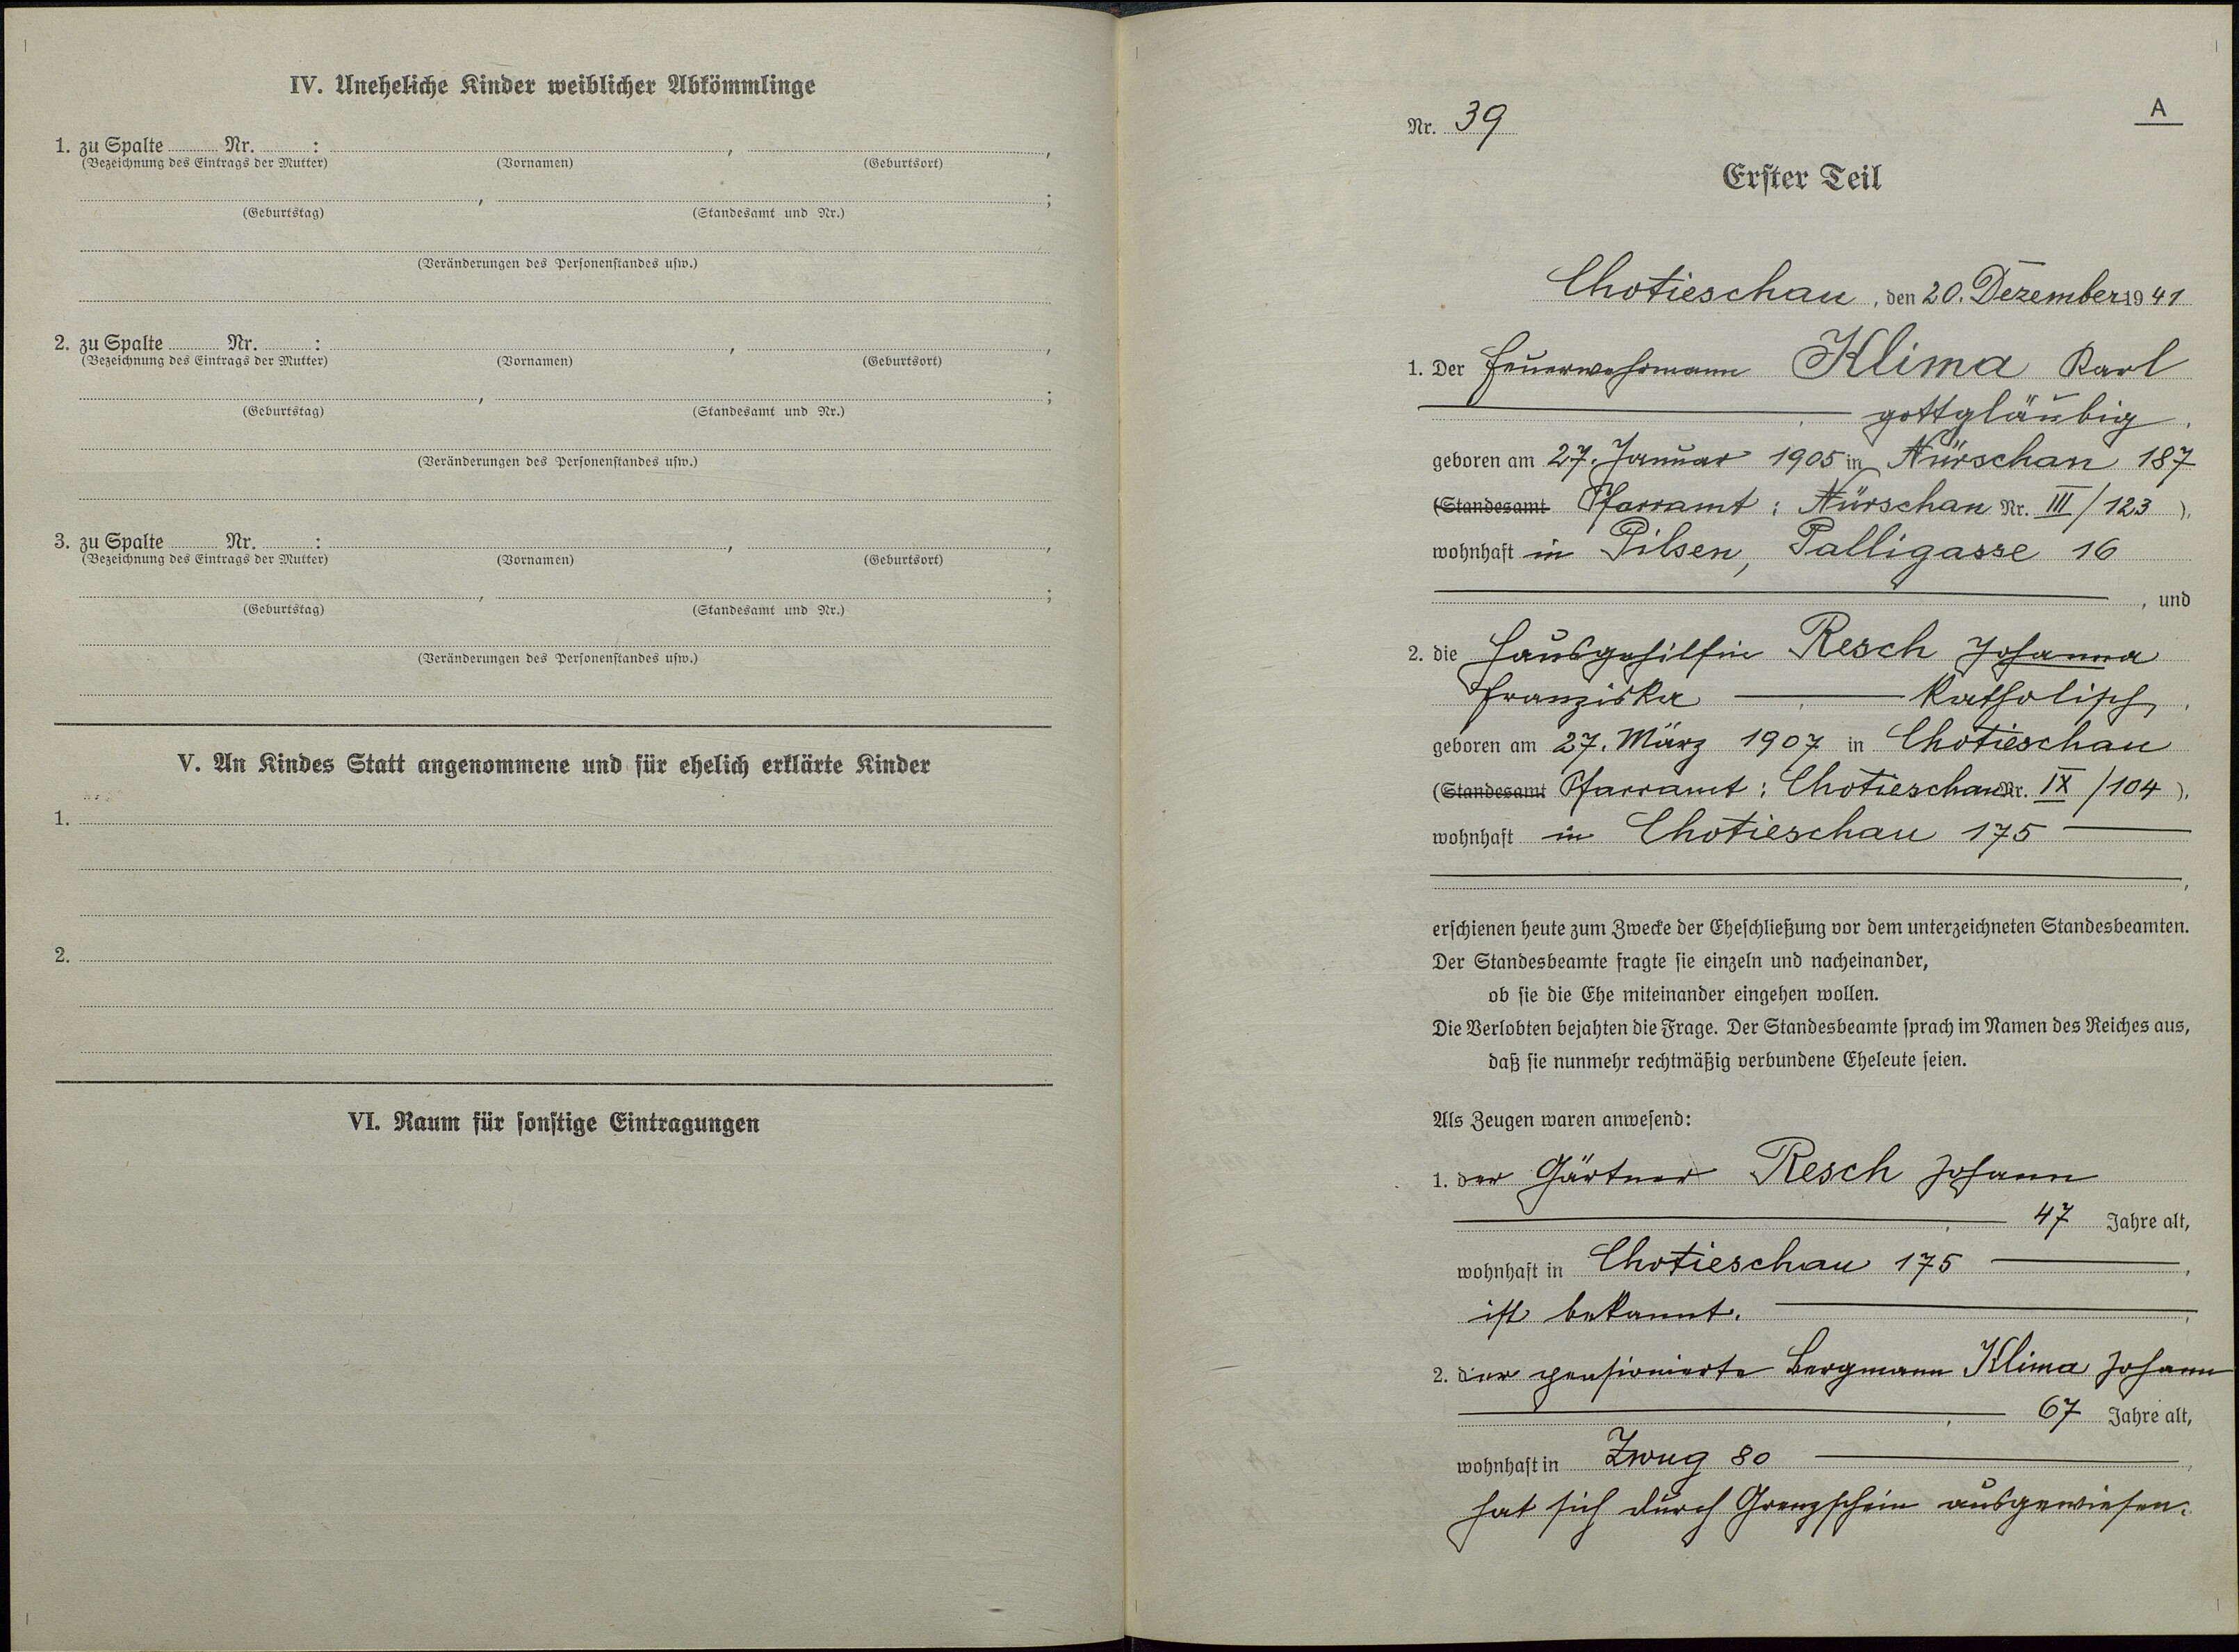 IV. Uneheliche Kinder weiblicher Abkömmlinge
1. zu Spalte Nr. : , ,
(Bezeichnung des Eintrags der Mutter) (Vornamen) (Geburtsort)
, ;
(Geburtstag) (Standesamt und Nr.)
(Veränderungen des Personenstandes usw.)
2. zu Spalte Nr. : , ,
(Bezeichnung des Eintrags der Mutter) (Vornamen) (Geburtsort)
, ;
(Geburtstag) (Standesamt und Nr.)
(Veränderungen des Personenstandes usw.)
3. zu Spalte Nr. : , ,
(Bezeichnung des Eintrags der Mutter) (Vornamen) (Geburtsort)
, ;
(Geburtstag) (Standesamt und Nr.)
(Veränderungen des Personenstandes usw.)
V. An Kindes Statt angenommene und für ehelich erklärte Kinder
1.
2.
VI. Raum für sonstige Eintragungen
A
Nr. 39
Erster Teil
Chotieschau, den 20. Dezember 1941
1. Der Feuerwehrmann Klima Karl
, gottgläubig,
geboren am 27. Januar 1905 in Nürschan 187
(Standesamt Pfarramt: Nürschan Nr. III/123),
wohnhaft in Pilsen, Palligasse 16
, und
2. die Hausgehilfin Resch Johanna
Franziska , katholisch,
geboren am 27. März 1907 in Chotieschau
(Standesamt Pfarramt: Chotieschau Nr. IX/104),
wohnhaft in Chotieschau 175
,
erschienen heute zum Zwecke der Eheschließung vor dem unterzeichneten Standesbeamten.
Der Standesbeamte fragte sie einzeln und nacheinander,
ob sie die Ehe miteinander eingehen wollen.
Die Verlobten bejahten die Frage. Der Standesbeamte sprach im Namen des Reiches aus,
daß sie nunmehr rechtmäßig verbundene Eheleute seien.
Als Zeugen waren anwesend:
1. der Gärtner Resch Johann
, 47 Jahre alt,
wohnhaft in Chotieschau 175 ,
ist bekannt.
2. der pensionierte Bergmann Klima Johann
, 67 Jahre alt,
wohnhaft in Zwug 80 ,
hat sich durch Grenzschein ausgewiesen.